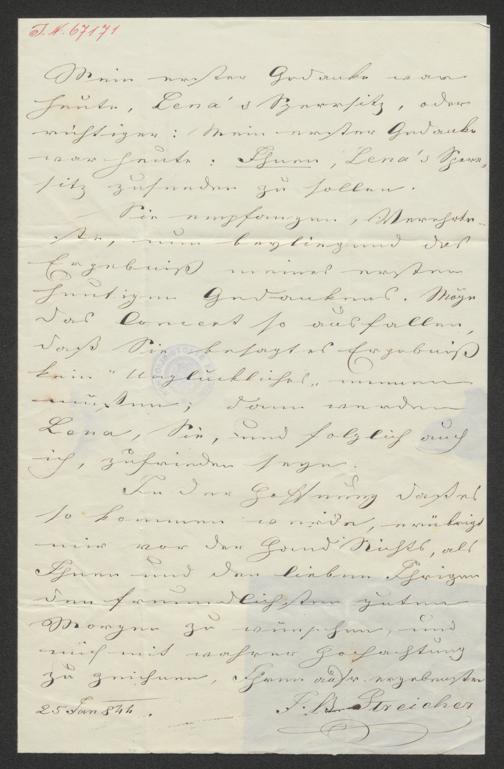 I.N. 67171
Mein erster Gedanke war
heute, Lena's Sperrsitz, oder
richtiger: Mein erster Gedanke
war heute: Ihnen, Lena's Sperr-
sitz zusenden zu sollen.
Sie empfangen, Verehrte-
ste, nun beyliegend das
Ergebniß meines ersten
heutigen Gedankens. Möge
das Concert so ausfallen,
daß Sie besagtes Ergebniß
kein "Unglückliches" nennen
müssen; dann werden
Lena, Sie, und folglich auch
ich, zufrieden seyn.
In der Hoffnung daß es
so kommen werde, erübrigt
mir vor der Hand Nichts, als
Ihnen und den lieben Ihrigen
den freundlichsten guten
Morgen zu wünschen, und
mich mit wahrer Hochachtung
zu zeichnen, Ihren ergebensten
25 Jan 844. J. B. Streicher